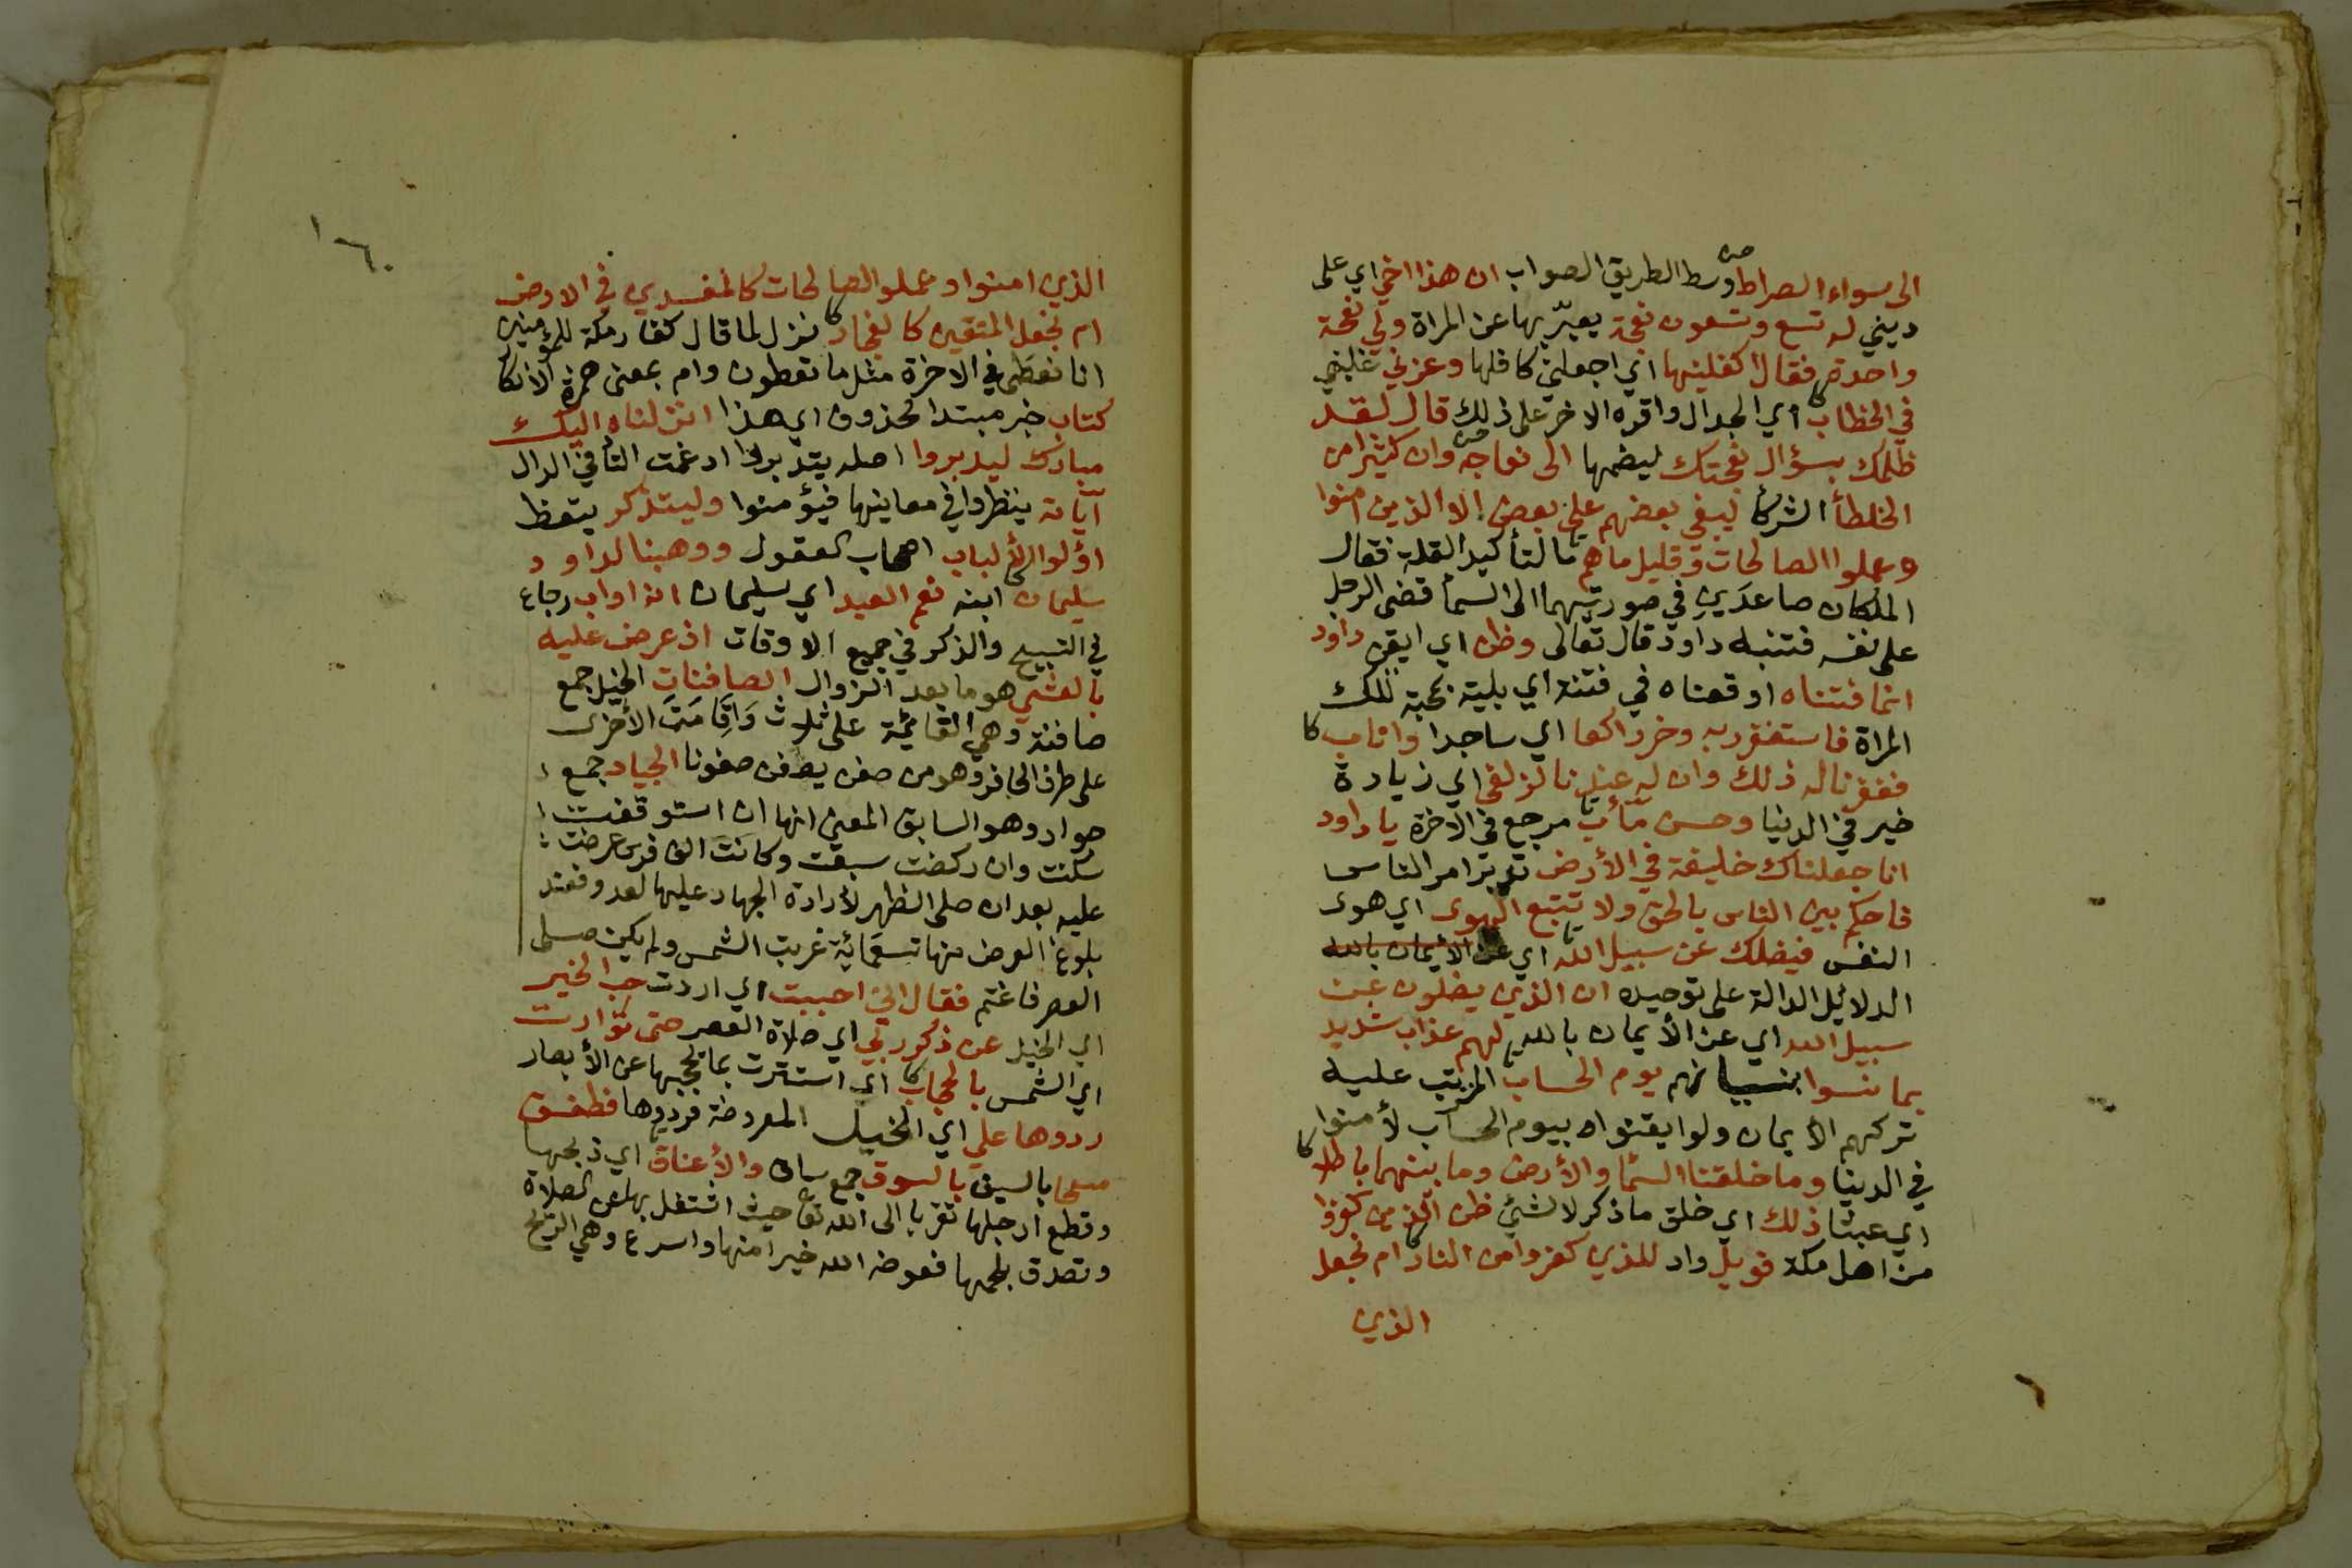 الى سواء الصراط وسط الطريق الصواب ان هذا اخي اي على
ديني له تسع وتسعون نعجة يعبّر بها عن المراة ولي نعجة
واحدة فقال اكفلنيها اي اجعلني كافلها وعزني غلبني
في الخطاب اي الجدال واقره الاخر على ذلك قال لقد
ظلمك بسؤال نعجتك ليضمها الى نعاجه وان كثيرا من
الخلطأ الشركأ ليبغى بعضهم على بعض الا الذين امنوا
وعملوا الصالحات وقليل ما هم ما لتأكيد القلة فقال
الملكان صاعدين في صورتيهما الى السمأ قضى الرجل
على نفسه فتنبه داود قال تعالى وظن اي ايقن داود
انما فتناه اوقعناه في فتنة اي بلية بمحبة تلك
المراة فاستغفر ربه وخر راكعا اي ساجدا واناب
فغفرنا له ذلك وان له عندنا لزلفى اي زيادة
خير في الدنيا وحسن مأب مرجع في الاخرة يا داود
انا جعلناك خليفة في الأرض تدبر امر الناس
فاحكم بين الناس بالحق ولا تتبع الهوى اي هوى
النفس فيضلك عن سبيل الله اي عن الايمان بالله
الدلائل الدالة على توحيده ان الذين يضلون عن
سبيل الله اي عن الأيمان بالله لهم عذاب شديد
بما نسوا بنسيانهم يوم الحساب المرتب عليه
تركهم الأيمان ولو ايقنوا بيوم الحساب لأمنوا
في الدنيا وما خلقنا السمأ والأرض وما بينهما باطلا
اي عبثا ذلك اي خلق ما ذكر لا لشئ ظن الذين كفروا
من اهل مكة فويل واد للذين كفروا من النار ام نجعل
الذين
١٦٠
الذين امنوا وعملوا الصالحات كالمفسدين في الارض
ام نجعل المتقين كالفجار نزل لما قال كفار مكة للمؤمنين
انا نعطى في الاخرة مثل ما تعطون وام بمعنى همزة الأنكار
كتاب خبر مبتدا محذوف اي هذا انزلناه اليك
مبارك ليدبروا اصله يتدبروا ادغمت التأ في الدال
آياته ينظروا في معانيها فيؤمنوا وليتذكر يتعظ
اؤلوا الألباب اصحاب العقول ووهبنا لداود
سليمان ابنه نعم العبد اي سليمان انه اواب رجاع
في التسبيح والذكر في جميع الاوقات اذ عرض عليه
بالعشي هو ما بعد الزوال الصافنات الخيل جمع
صافنة وهي القائمة على ثلاث وَاقِامَتَ الأخرى
على طرف الحافر وهو من صفن يصفن صفونا الجياد جمع
جواد وهو السابق المعنى انها ان استوقفت
سكنت وان ركضت سبقت وكانت الف فرس عرضت
عليه بعد ان صلى الظهر لأرادة الجهاد عليها لعدو فعند
بلوغ العرض منها تسعمائة غربت الشمس ولم يكن صلى
العصر فاغتم فقال اني احببت اي اردت حب الخير
اي الخيل عن ذكر ربي اي صلاة العصر حتى توارت
اي الشمس بالحجاب اي استترت بما يحجبها عن الأبصار
ردوها علي اي الخيل المعروضة فردوها فطفق
مسحا بالسيف بالسوق جمع ساق والأعناق اي ذبحها
وقطع ارجلها تقربا الى الله تعا حيث اشتغل بها عن الصلاة
وتصدق بلحمها فعوضه الله خيرا منها واسرع وهي الريح